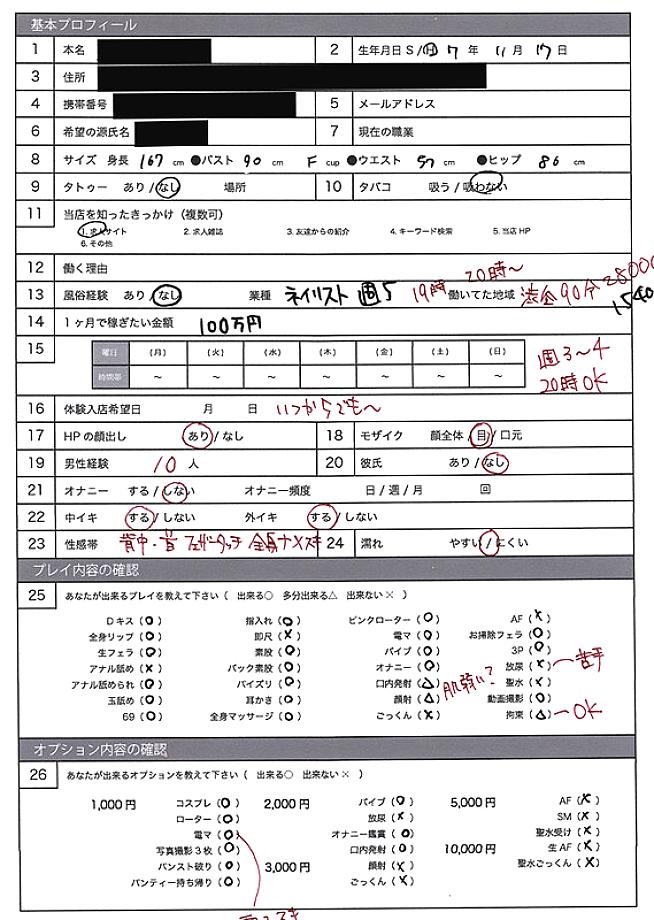 基本プロフィール
1 本名 2 生年月日 S / H 7 年 11 月 17 日
3 住所
4 携帯番号 5 メールアドレス
6 希望の源氏名 7 現在の職業
8 サイズ 身長 167 cm ●バスト 90 cm F cup ●ウエスト 57 cm ●ヒップ 86 cm
9 タトゥー あり / なし 場所 10 タバコ 吸う / 吸わない
11 当店を知ったきっかけ（複数可）
1. 求人サイト 2. 求人雑誌 3. 友達からの紹介 4. キーワード検索 5. 当店 HP
6. その他
12 働く理由 20時～
13 風俗経験 あり / なし 業種 ネイリスト 週5 19時 働いてた地域 90分 28000
14 1ヶ月で稼ぎたい金額 100万円
15 曜日 （月） （火） （水） （木） （金） （土） （日） 週3～4
時間帯 ～ ～ ～ ～ ～ ～ ～ 20時OK
16 体験入店希望日 月 日 いつからでも～
17 HPの顔出し あり / なし 18 モザイク 顔全体 / 目 / 口元
19 男性経験 10 人 20 彼氏 あり / なし
21 オナニー する / しない オナニー頻度 日 / 週 / 月 回
22 中イキ する / しない 外イキ する / しない
23 性感帯 背中・首 フェザータッチ 全身ナメスキ 24 濡れ やすい / にくい
プレイ内容の確認
25 あなたが出来るプレイを教えて下さい（ 出来る○ 多分出来る△ 出来ない× ）
Dキス（○） 指入れ（○） ピンクローター（○） AF（×）
全身リップ（○） 即尺（×） 電マ（○） お掃除フェラ（○）
生フェラ（○） 素股（○） バイブ（○） 3P（○）
アナル舐め（×） バック素股（○） オナニー（○） 放尿（×）～苦手
アナル舐められ（○） パイズリ（○） 口内発射（△） 肌弱い？ 聖水（×）
玉舐め（○） 耳かき（○） 顔射（△） 動画撮影（○）
69（○） 全身マッサージ（○） ごっくん（×） 拘束（△）～OK
オプション内容の確認
26 あなたが出来るオプションを教えて下さい（ 出来る○ 出来ない× ）
1,000円 コスプレ（○） 2,000円 バイブ（○） 5,000円 AF（×）
ローター（○） 放尿（×） SM（×）
電マ（○） オナニー鑑賞（○） 聖水受け（×）
写真撮影3枚（○） 口内発射（○） 10,000円 生AF（×）
パンスト破り（○） 3,000円 顔射（×） 聖水ごっくん（×）
パンティー持ち帰り（○） ごっくん（×）